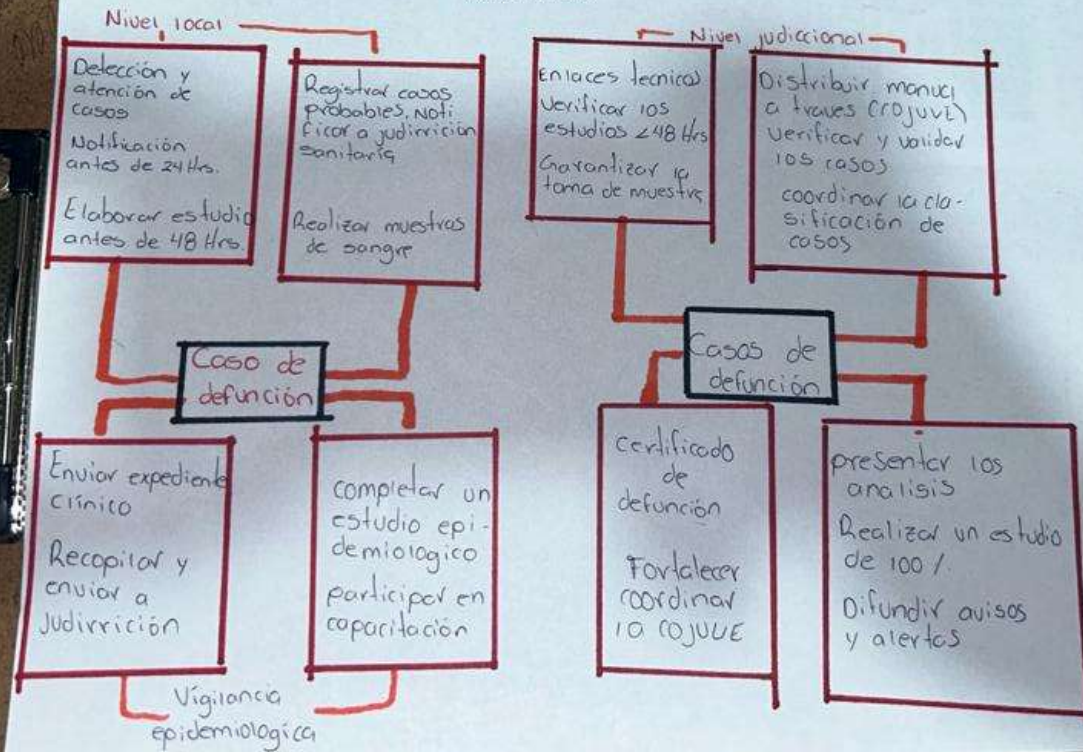 Nivel local
Detección y
atención de
casos
Notificación
antes de 24 Hrs.
Elaborar estudio
antes de 48 Hrs.
Registrar casos
probables, Noti
ficar a judirrición
sanitaria
Realizar muestras
de sangre
Caso de
defunción
Enviar expediente
Clínico
Recopilar y
enviar a
Judirrición
completar un
estudio epi-
demiologico
participar en
capacitación
Vigilancia
epidemiologica
Nivel judiccional
Enlaces tecnicos
Verificar los
estudios <48 Hrs
Garantizar la
toma de muestra
Distribuir manual
a traves (COJUVE)
Verificar y validar
los casos
coordinar la cla-
sificación de
casos
Casos de
defunción
Certificado
de
defunción
Fortalecer
coordinar
la COJUVE
presentar los
analisis
Realizar un estudio
de 100 %
Difundir avisos
y alertas